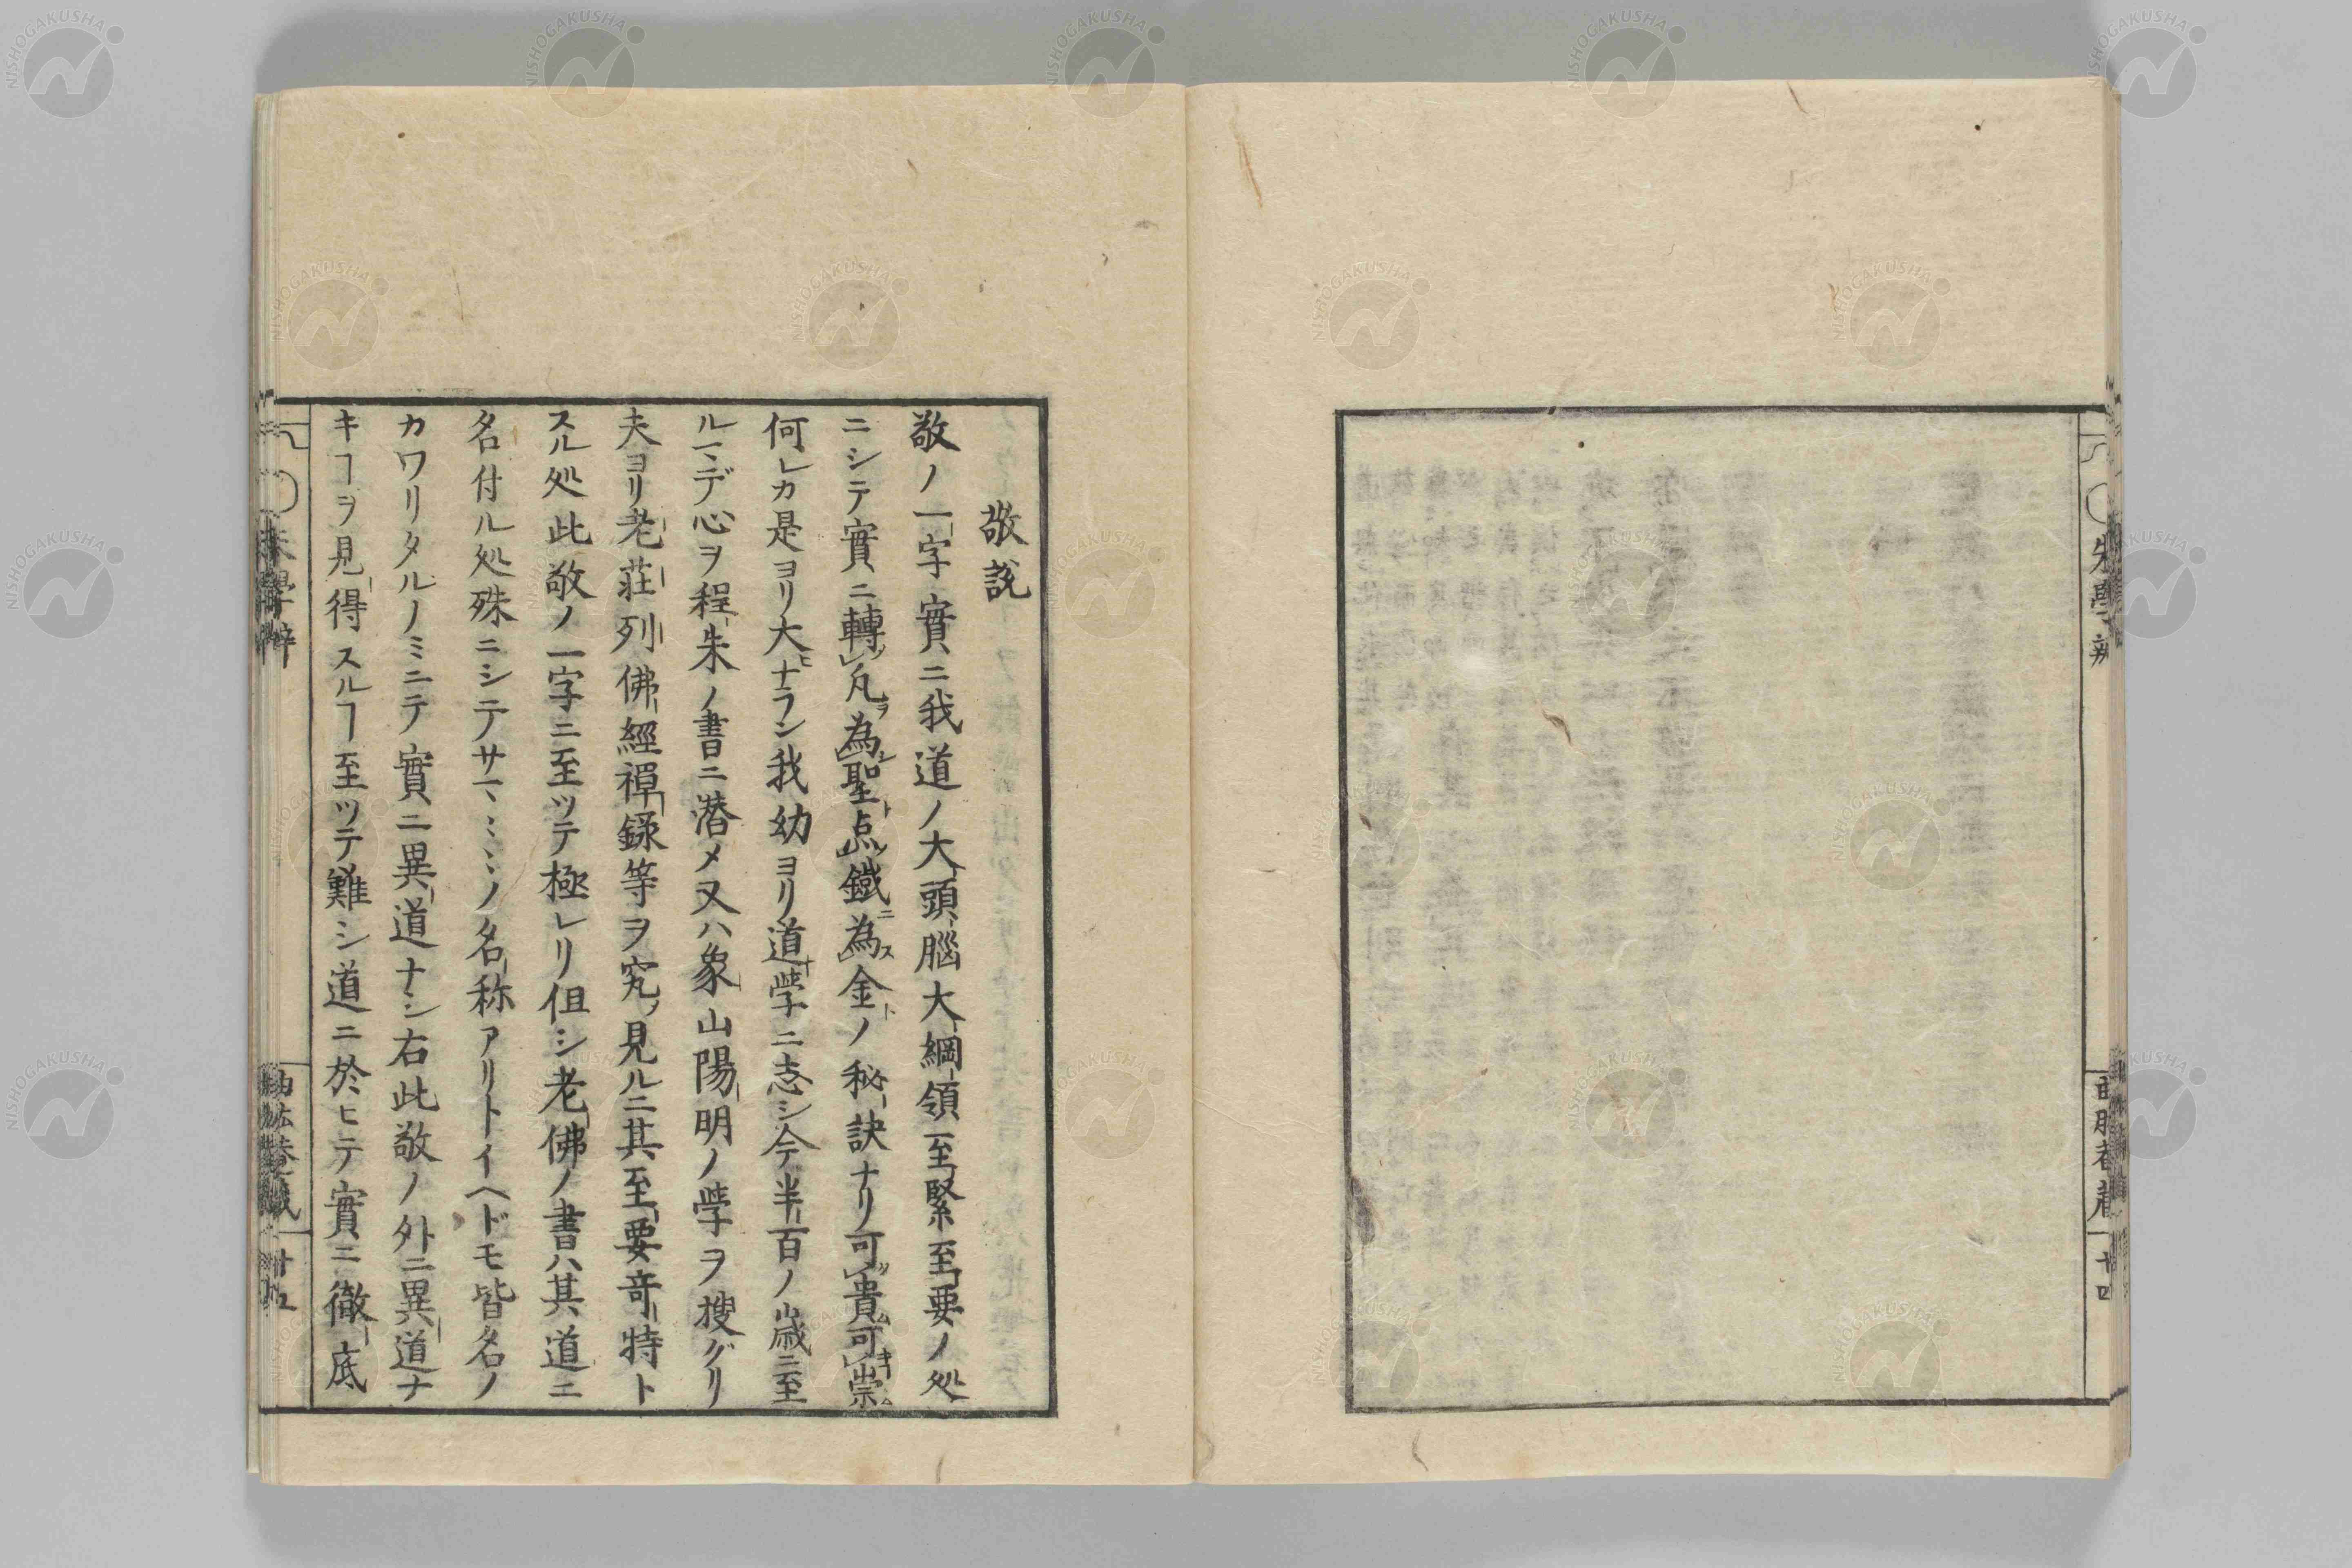 敬説
敬ノ一字實ニ我道ノ大頭腦大綱領至緊至要ノ処
ニシテ實ニ轉凡為聖点鐵為金ノ秘訣ナリ可貴可崇
何レカ是ヨリ大ナラン我幼ヨリ道学ニ志シ今半百ノ歳ニ至
ルマデ心ヲ程朱ノ書ニ潜メ又ハ象山陽明ノ学ヲ搜グリ
夫ヨリ老莊列佛經禅録等ヲ究ノ見ルニ其至要奇特ト
スル処此敬ノ一字ニ至ツテ極レリ但シ老佛ノ書ハ其道ニ
名付ル処殊ニシテサマ〻〻〻ノ名称アリトイヘドモ皆名ノ
カワリタルノミニテ實ニ異道ナシ右此敬ノ外ニ異道ナ
キヿヲ見得スルヿ至ツテ難シ道ニ於ヒテ實ニ徹底
朱學辨
十四
朱學辨
菴藏
十五
NISHOGAKUSHA